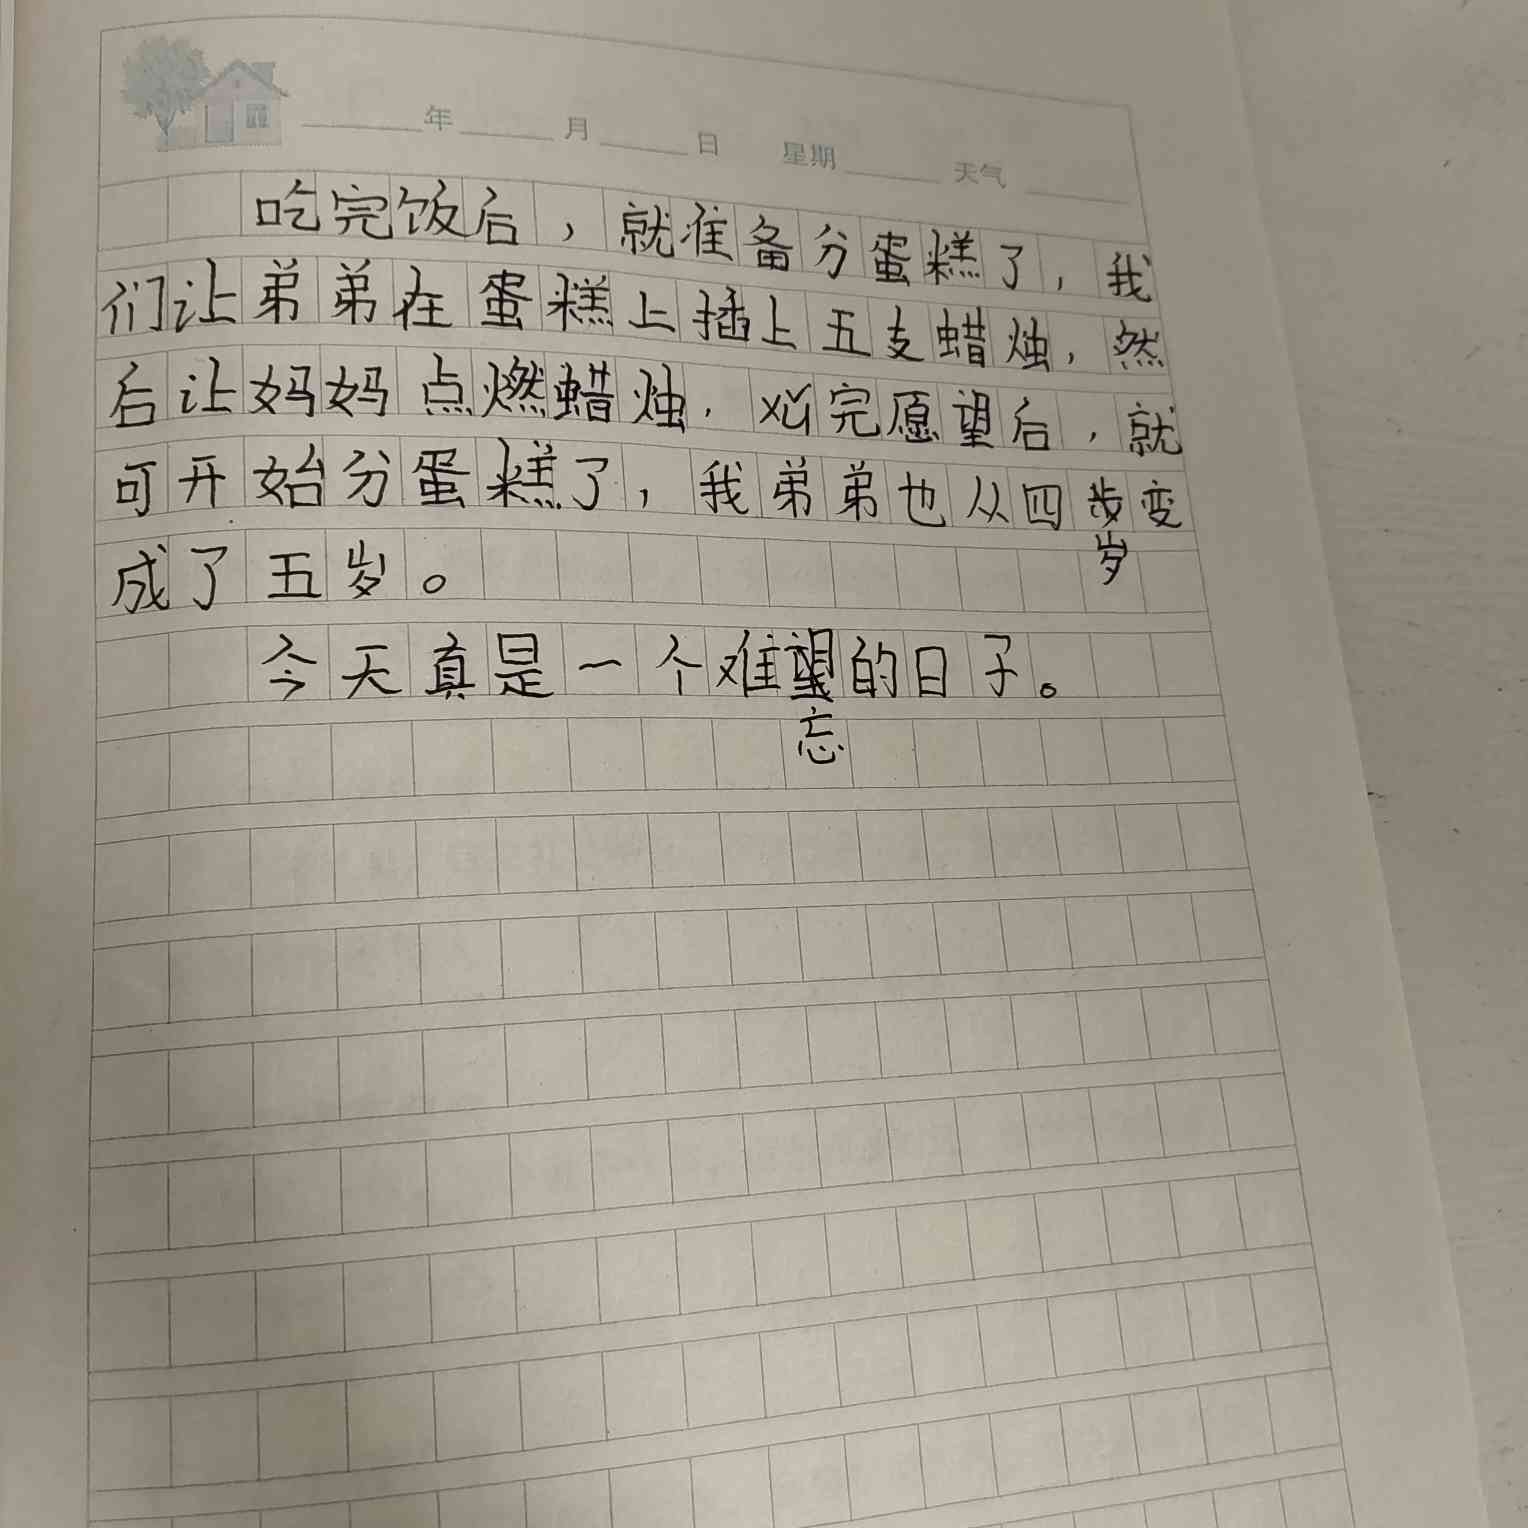 年 月 日 星期 天气
吃完饭后，就准备分蛋糕了，我
们让弟弟在蛋糕上插上五支蜡烛，然
后让妈妈点燃蜡烛，完愿望后，就
可开始分蛋糕了，我弟弟也从四步变
岁
成了五岁。
今天真是一个难望的日子。
忘